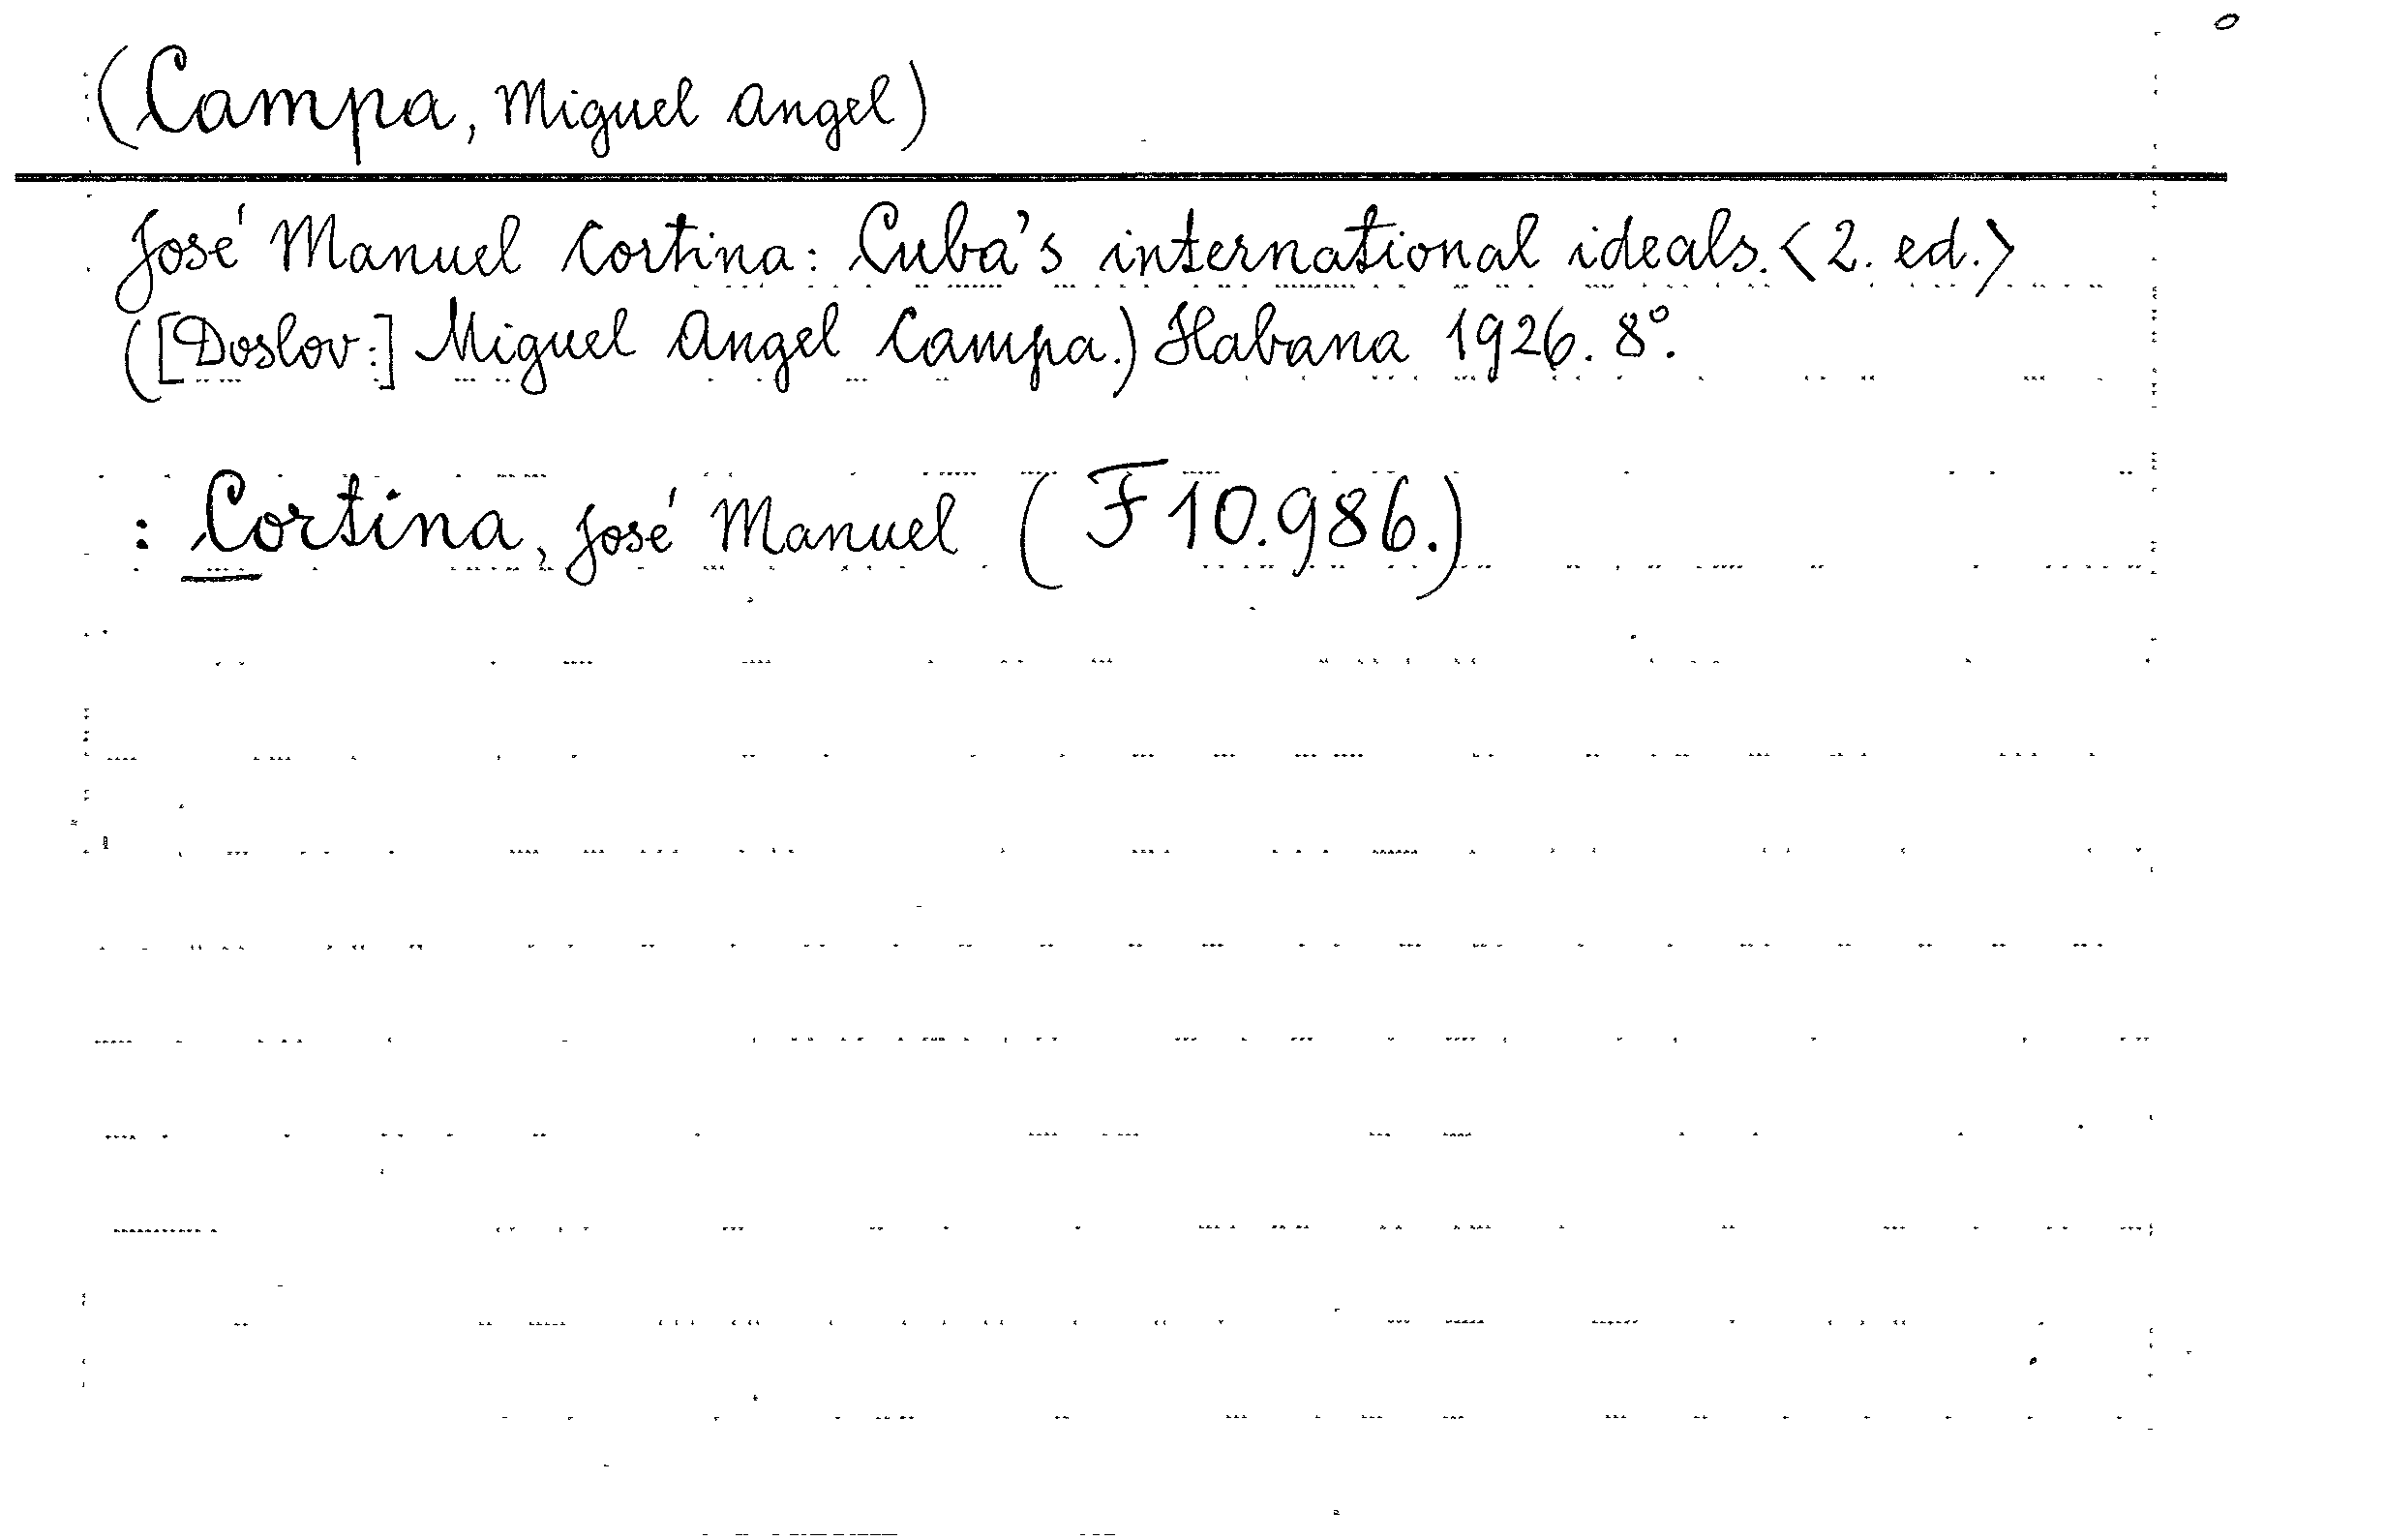 (Campa, Miguel Angel)
José Manuel Cortina: Cuba's international ideals. <2. ed.>
([Doslov:] Miguel Angel Campa.) Habana 1926. 8°.
: Cortina, José Manuel (F 10.986.)